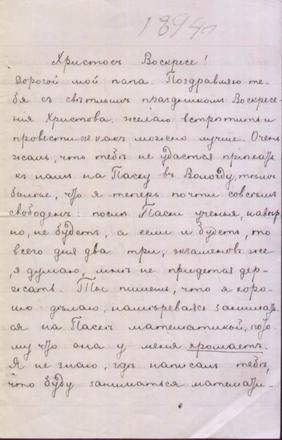 1894
Христосъ Воскресе!
Дорогой мой папа. Поздравляю те-
бя съ свѣтлымъ праздникомъ Воскресе-
нія Христова. желаю встрѣтить и
провести какъ можно лучше. Очень
жаль, что тебѣ не удастся пріѣхать
къ намъ на Пасху въ Вологду, тѣмъ
болѣе, что я теперь почти совсѣмъ
свободенъ: послѣ Пасхи ученья, навѣр-
но, не будетъ, а если и будетъ, то
всего дня два три, экзаменовъ же,
я думаю, мнѣ не придется дер-
жать. Ты пишешь, что я хоро-
шо дѣлаю, намѣреваясь занимать-
ся на Пасхѣ математикой, пото-
му что она у меня хромаетъ.
Я не знаю, гдѣ написалъ тебѣ,
что буду заниматься математи-